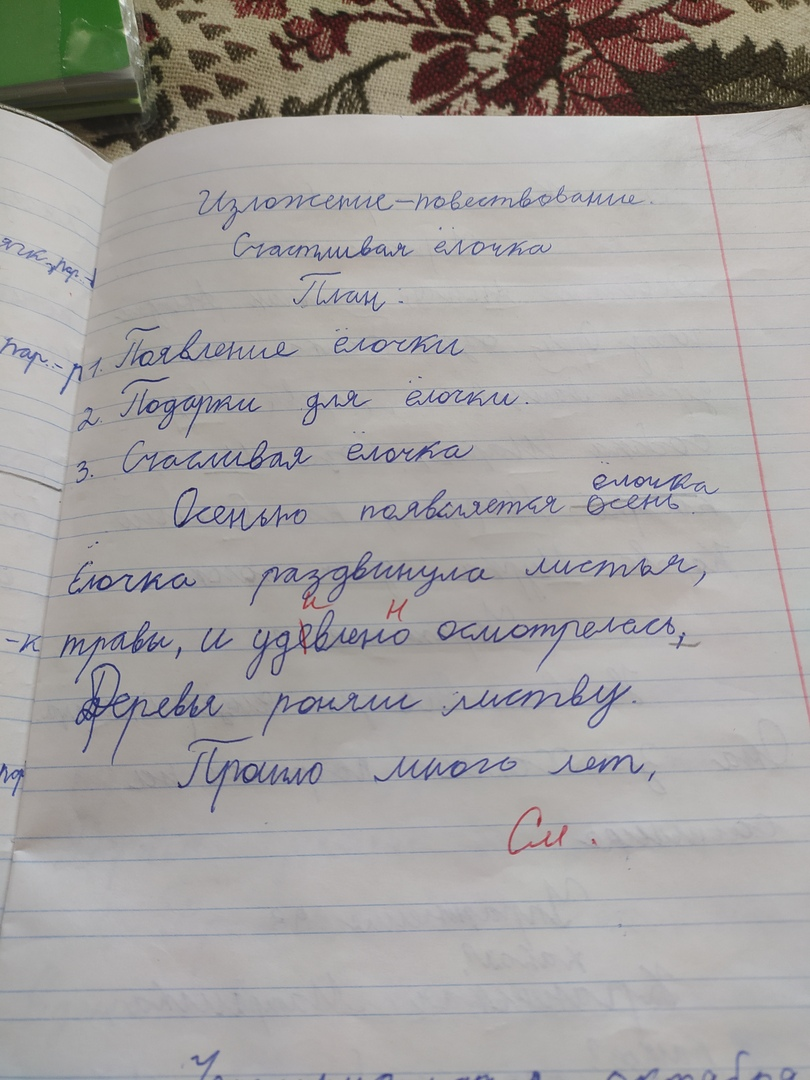 Изложение-повествование.
Счастливая ёлочка
План:
1. Появление ёлочки
2. Подарки для ёлочки.
3. Счасливая ёлочка
ёлочка
Осенью появляется осень.
Ёлочка раздвинула листья,
-к травы, и удевлено осмотрелась,
и н
Деревья роняли листву.
Прошло много лет,
См.
октября